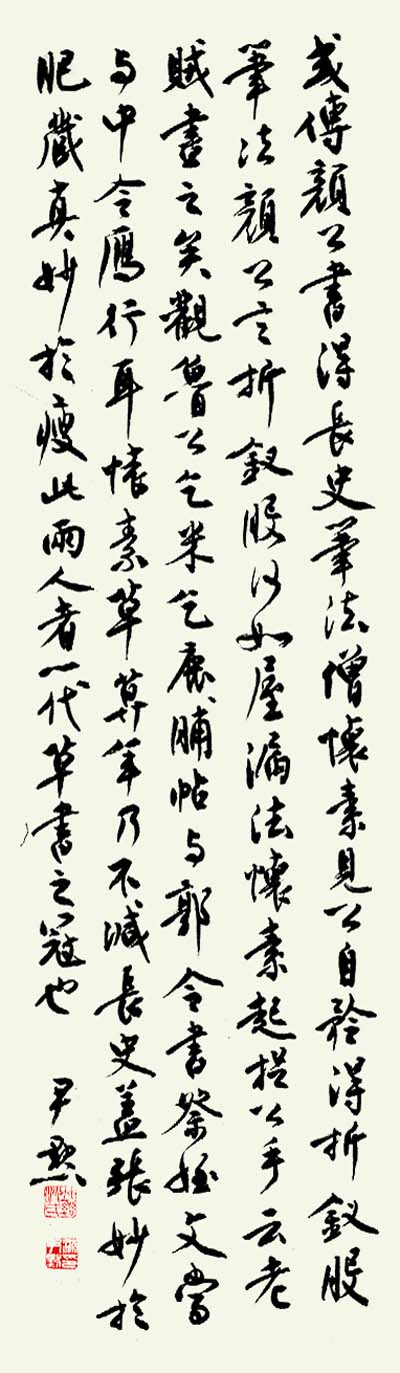 或傳顏公書得長史筆法僧懷素見公自矜得折釵股
筆法顏公言折釵股何如屋漏法懷素起捉公手云老
賊盡之矣觀魯公乞米乞鹿脯帖与郭令書祭姪文當
与中令鴈行耳懷素草莫年乃不減長史蓋張妙於
肥藏真妙於瘦此兩人者一代草書之冠也 尹默